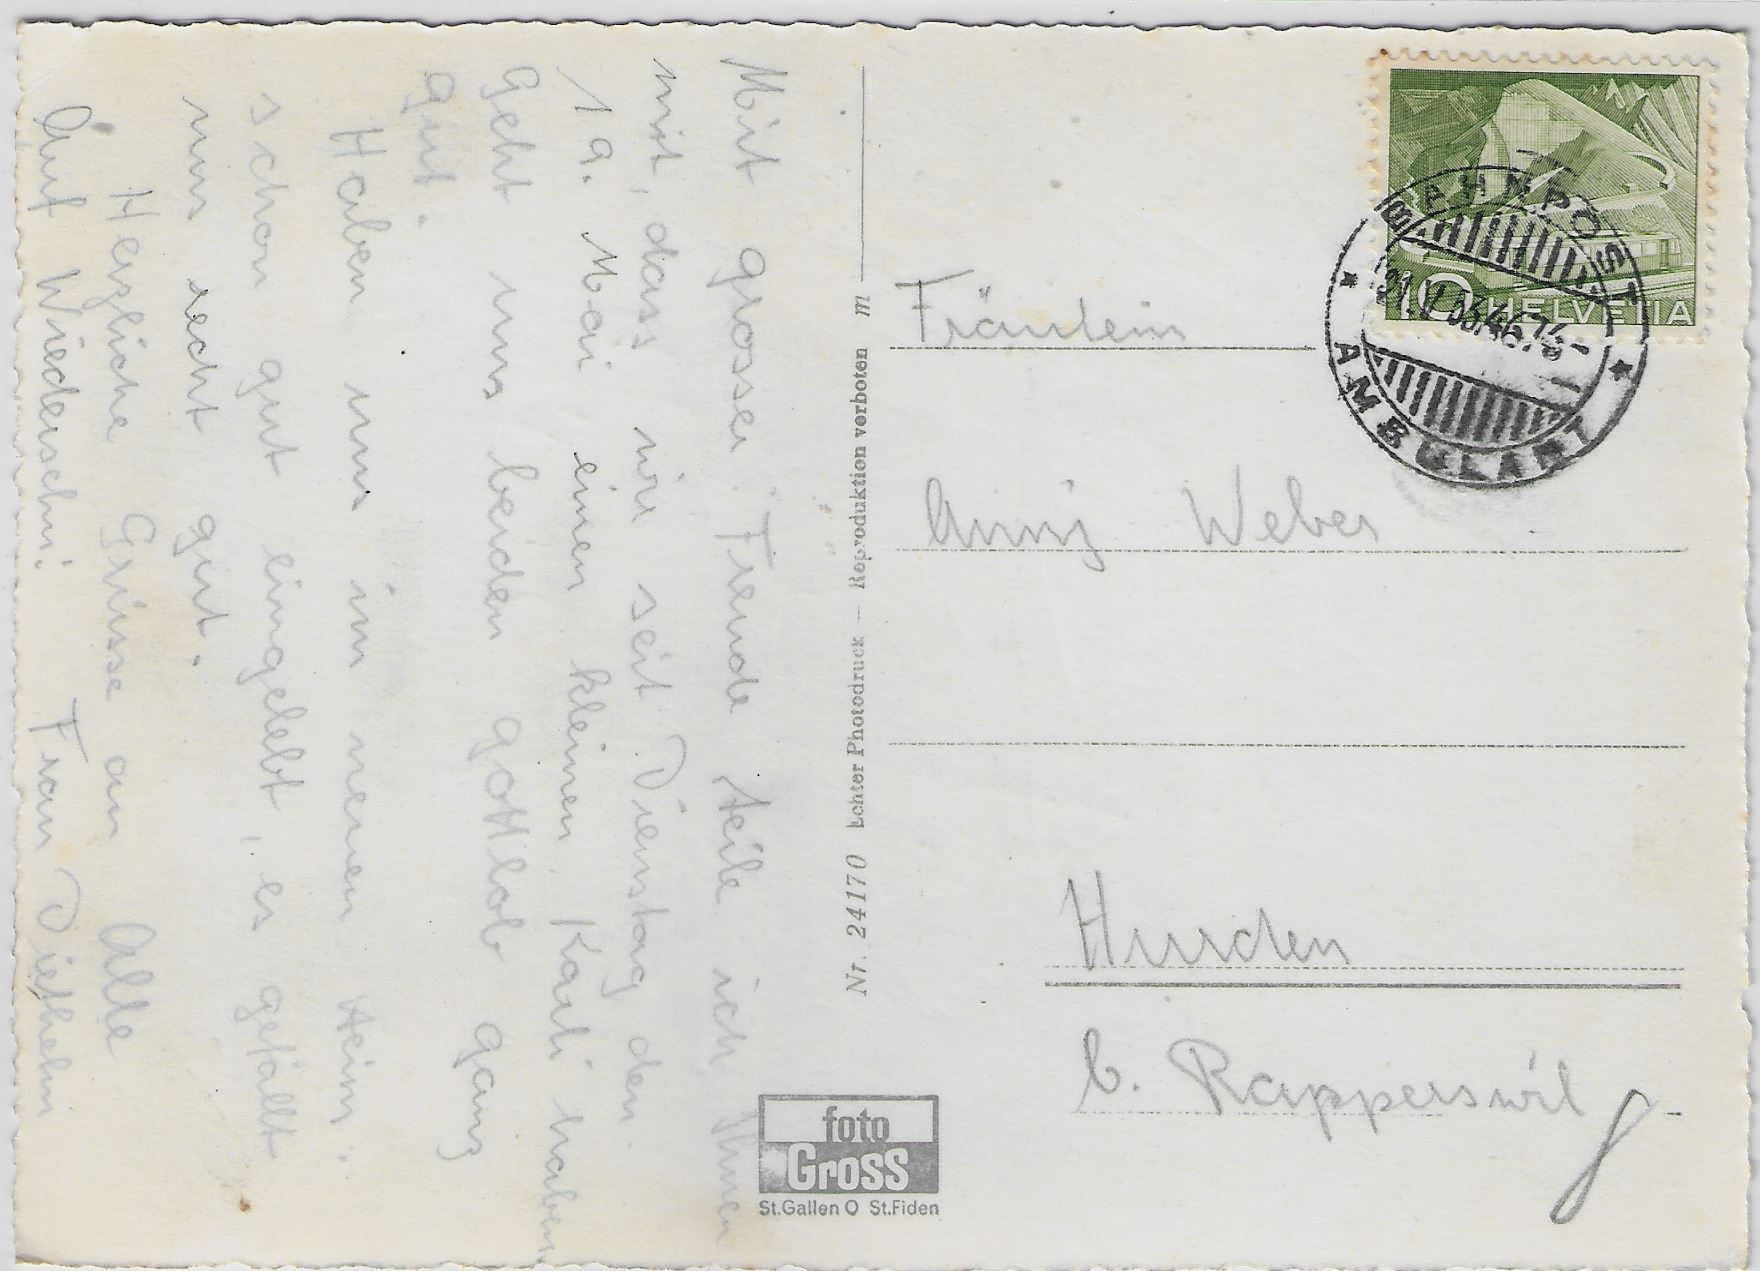 Mit grosser Freude teile ich Ihnen
mit, dass wir seit Dienstag den
19. Mai einen kleinen Karli haben
Geht uns beiden gottlob ganz
gut.
Haben uns im neuen Heim
schon gut eingelebt, es gefällt
uns recht gut.
Herzliche Grüsse an Alle
Auf Wiedersehn! Frau Diethelm
Nr. 24170 Echter Photodruck — Reproduktion verboten m
foto
Gross
St.Gallen O St.Fiden
10 HELVETIA
BAHNPOST
AMBULANT
Fräulein
Anny Weber
Hurden
b. Rapperswil